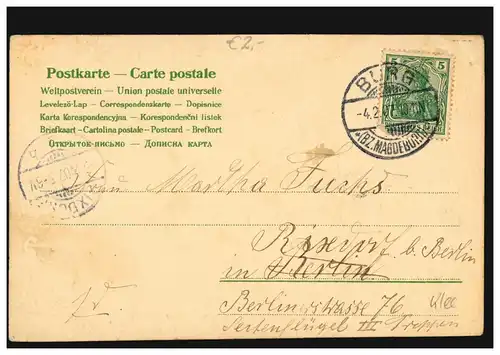 €2,-
Postkarte — Carte postale
Weltpostverein — Union postale universelle
Levelező-Lap — Correspondenskarte — Dopisnice
Karta Korespondencyjna — Korespondenční lístek
Briefkaart — Cartolina postale — Postcard — Brefkort
Открытое письмо — Дописна карта
5 5
BURG
-4.2
*(BZ.MAGDEBURG)
Frau Martha Fuchs
Rixdorf b. Berlin
in Berlin
Berlinerstrasse 76
Seitenflügel III Treppen
fr.